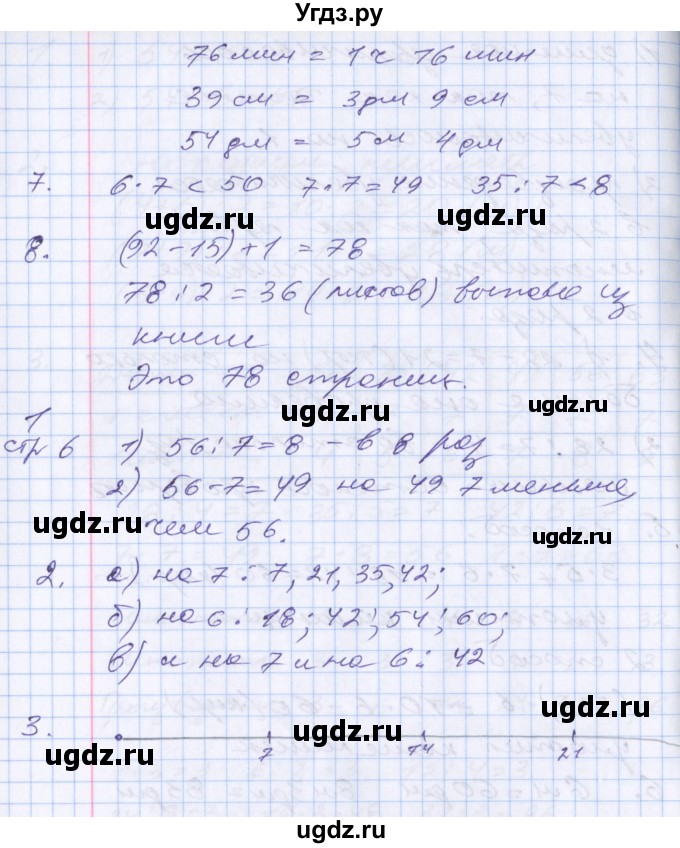 Угдз.ру
76 мин = 1 ч 16 мин
39 см = 3 дм 9 см
54 дм = 5 м 4 дм
7. 6 · 7 < 50 7 · 7 = 49 35 : 7 < 8
ugdz.ru ugdz.ru
8. (92 - 15) + 1 = 78
78 : 2 = 36 (листов) выпало из
ugdz.ru ugdz.ru
книги
Это 78 страниц.
ugdz.ru ugdz.ru
1
стр 6 1) 56 : 7 = 8 - в 8 раз
2) 56 - 7 = 49 на 49 7 меньше,
чем 56.
ugdz.ru ugdz.ru
2. а) на 7 : 7, 21, 35, 42;
б) на 6 : 18; 42; 54; 60;
ugdz.ru ugdz.ru
в) и на 7 и на 6 : 42
3. 7 14 21
ugdz.ru ugdz.ru
ugdz.ru ugdz.ru
ugdz.ru